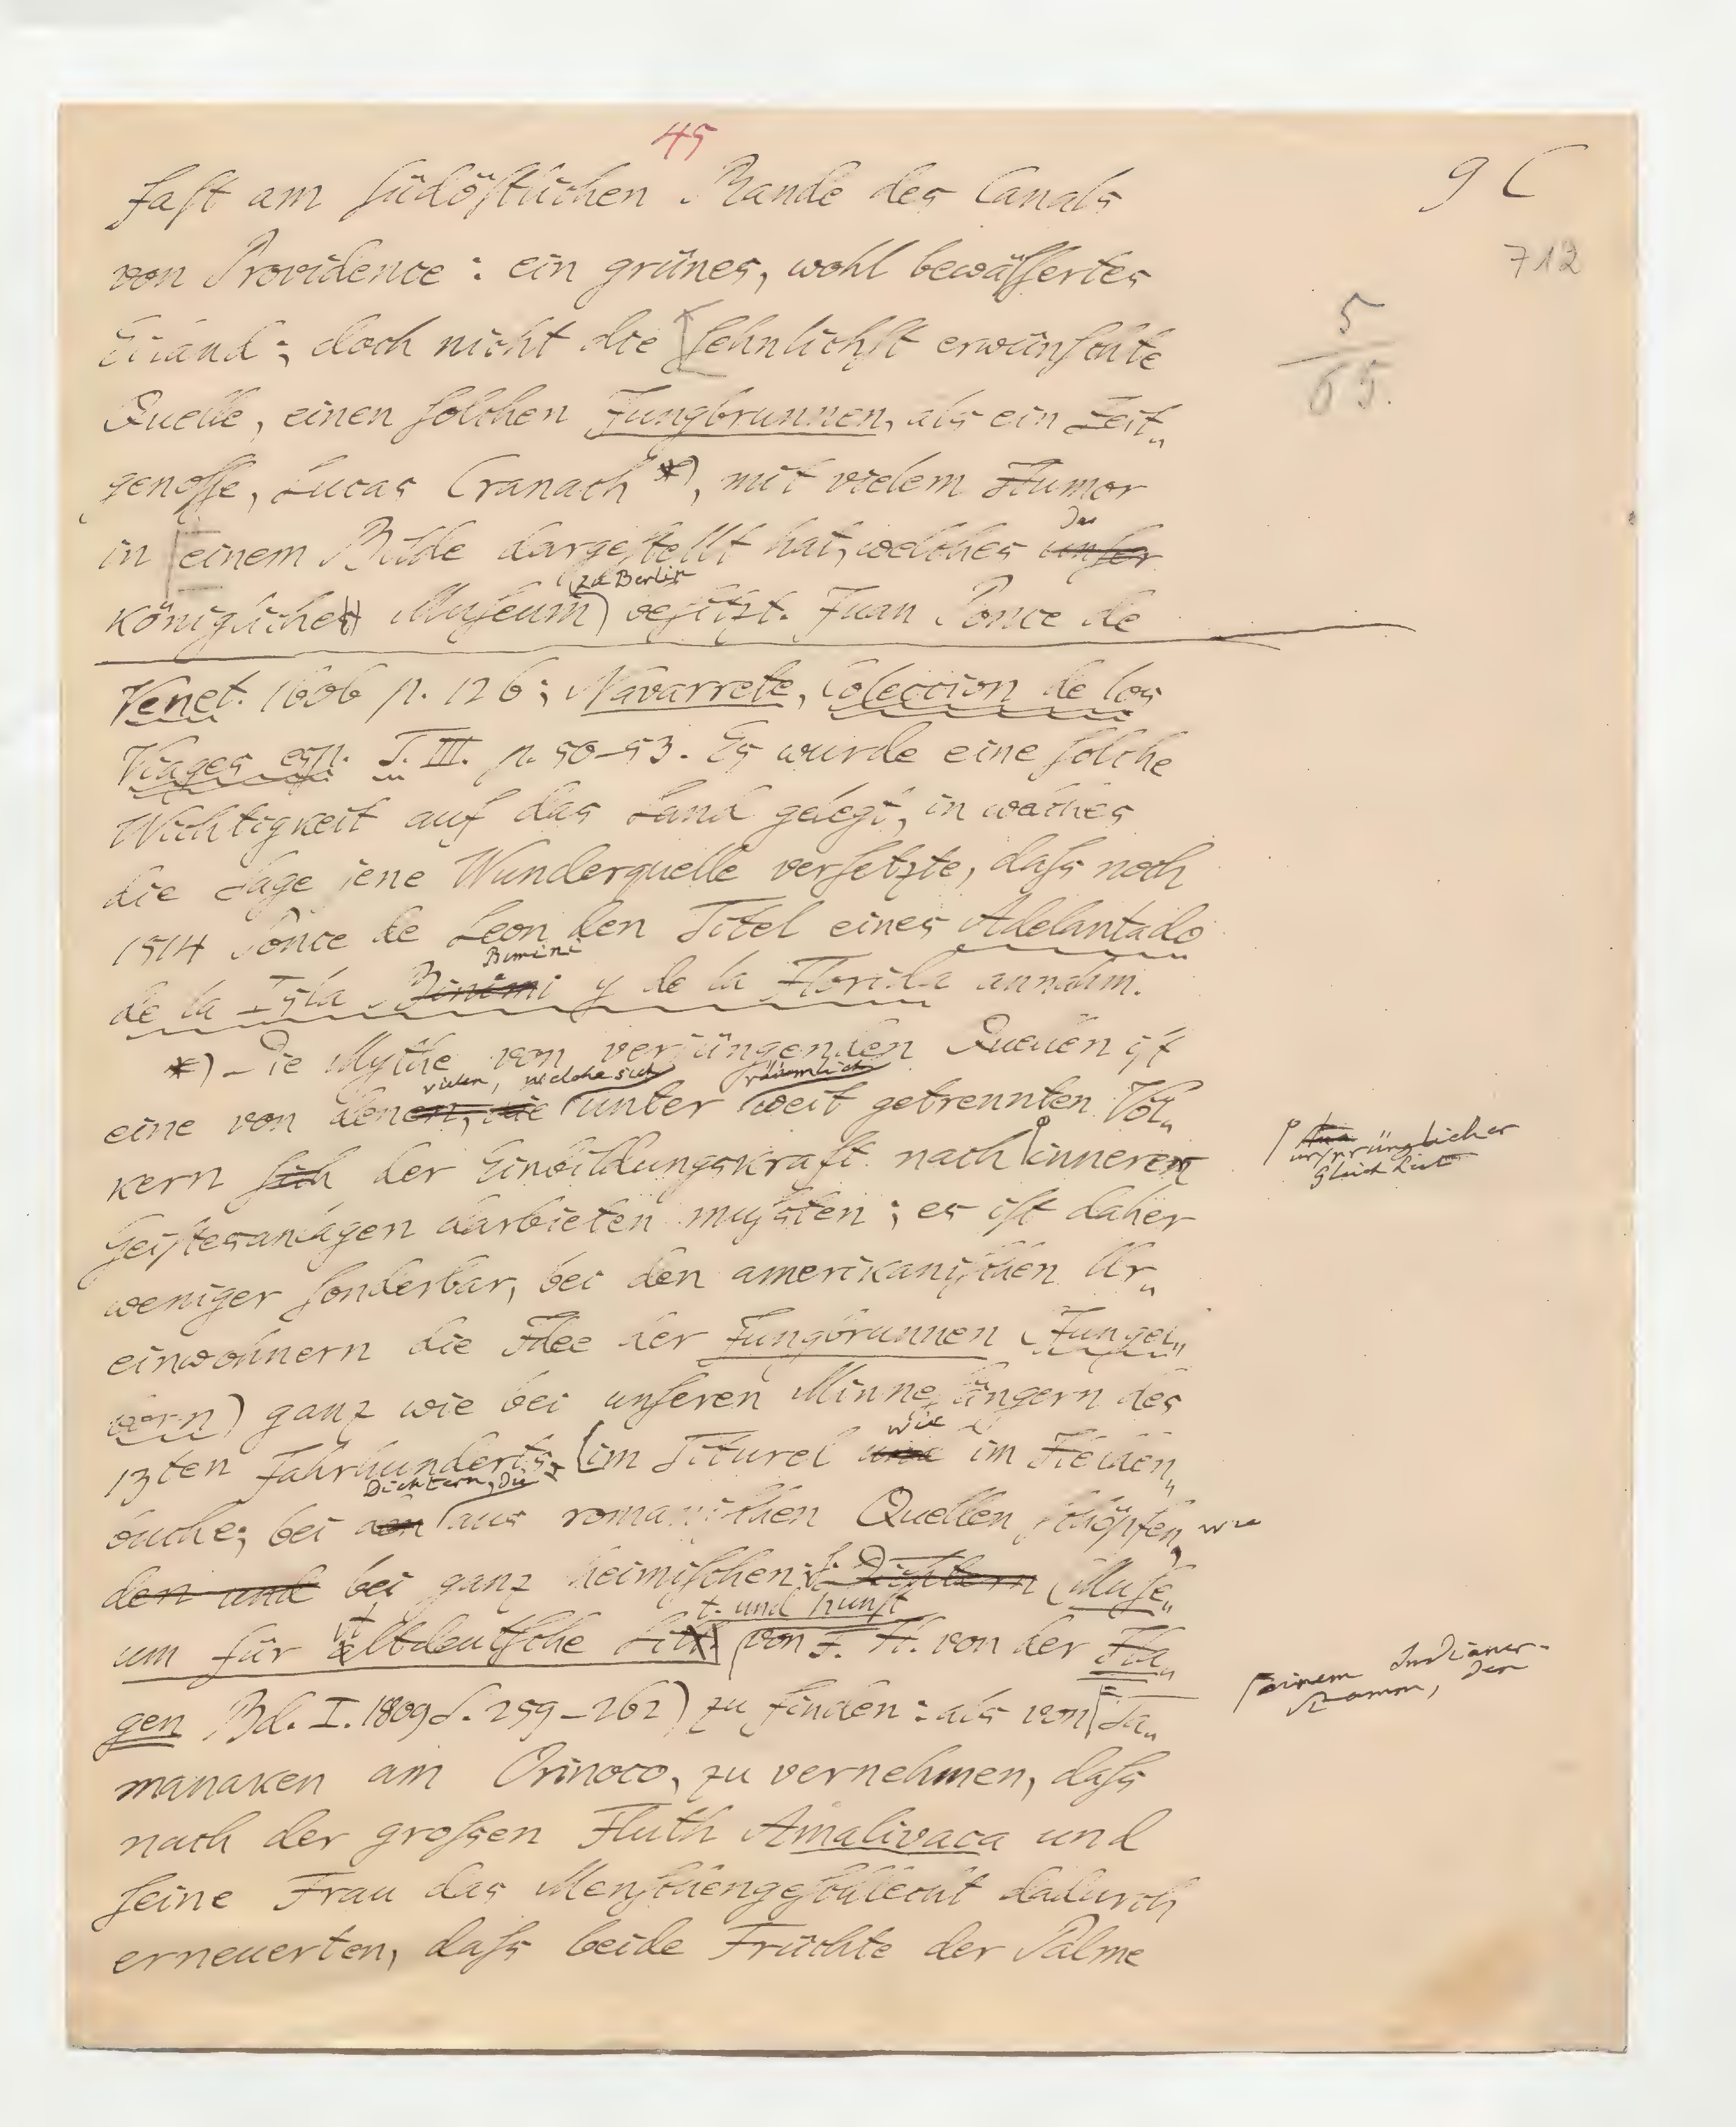 45
9 C
712
5
65.
fast am südöstlichen Rande des Canals
von Providence: ein grünes, wohl bewässertes
Eiland; doch nicht die sehnlichst erwünschte
Quelle, einen solchen Jungbrunnen, als ein Zeit„
genosse, Lucas Cranach *), mit vielem Humor
in einem Bilde dargestellt hat, welches unser
das
königliches Museum besitzt. Juan Ponce de
zu Berlin
Venet. 1606 p. 126; Navarrete, Coleccion de los
Viages esp. T. III. p. 50-53. Es wurde eine solche
Wichtigkeit auf das Land gelegt, in welches
die Sage jene Wunderquelle versetzte, dass noch
1514 Ponce de Leon den Titel eines Adelantado
Bimini
de la Isla Binimi y de la Florida annahm.
*) Die Mythe von verjüngenden Quellen ist
vielen, welche sich räumlich
eine von denen, die unter weit getrennten Völ„
kern sich der Einbildungskraft nach inneren
ursprünglicher
Gleichheit
Geistesanlagen darbieten mussten; es ist daher
weniger sonderbar, bei den amerikanischen Ur„
einwohnern die Idee der Jungbrunnen (Junge„
born) ganz wie bei unseren Minnesängern des
13ten Jahrhunderts, im Titurel und im Helden„
wie
buche; bei den aus romanischen Quellen schöpfen wie
Dichtern, die
den und bei ganz heimischen Dichtern (Muse„
um für altdeutsche Lit. von F. H. von der Ha„
t. und Kunst
gen Bd. I. 1809 S. 259-262) zu finden: als von Ta„
einem Indianer-
Stamm, den
manaken am Orinoco, zu vernehmen, dass
nach der grossen Fluth Amalivaca und
seine Frau das Menschengeschlecht dadurch
erneuerten, dass beide Früchte der Palme